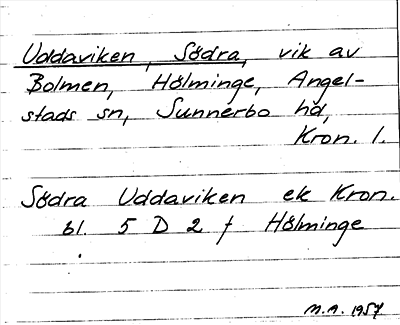 Uddaviken, Södra, vik av
Bolmen, Hölminge, Angel-
stads sn, Sunnerbo hd,
Kron. l.
Södra Uddaviken ek Kron.
bl. 5 D 2 f Hölminge
M.A. 1957